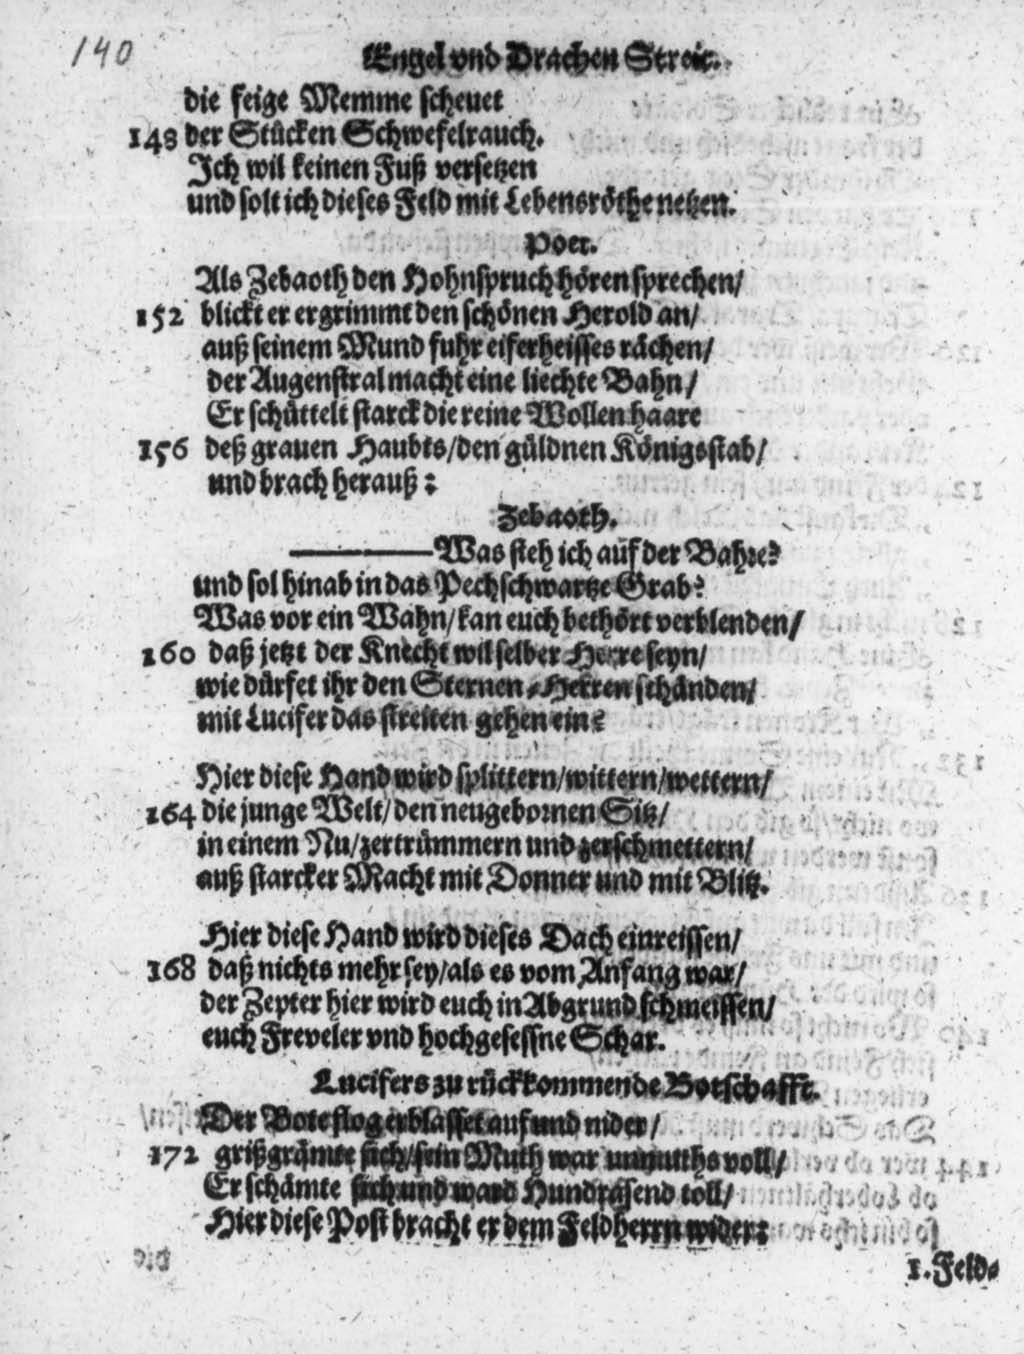 140
Engel vnd Drachen Streit.
die feige Memme scheuet
148 der Stücken Schwefelrauch.
Ich wil keinen Fuß versetzen
und solt ich dieses Feld mit Lebensröthe netzen.
Poet.
Als Zebaoth den Hohnspruch hören sprechen/
152 blickt er ergrimmt den schönen Herold an/
auß seinem Mund fuhr eiferheisses rächen/
der Augenstral macht eine liechte Bahn/
Er schüttelt starck die reine Wollen haare
156 deß grauen Haubts/den güldnen Königsstab/
und brach herauß:
Zebaoth.
————Was steh ich auf der Bahre?
und sol hinab in das Pechschwartze Grab?
Was vor ein Wahn/kan euch bethört verblenden/
160 daß jetzt der Knecht wil selber Herre seyn/
wie dürfet ihr den Sternen-Herren schänden/
mit Lucifer das streiten gehen ein?
Hier diese Hand wird splittern/wittern/wettern/
164 die junge Welt/den neugebornen Sitz/
in einem Nu/zertrümmern und zerschmettern/
auß starcker Macht mit Donner und mit Blitz.
Hier diese Hand wird dieses Dach einreissen/
168 daß nichts mehr sey/als es vom Anfang war/
der Zepter hier wird euch in Abgrund schmeissen/
euch Freveler vnd hochgesessne Schar.
Lucifers zu rückkommende Botschafft.
Der Bote flog erblasset auf und nider/
172 grißgrämte sich/sein Muth war unmuths voll/
Er schämte sich und ward Hundrasend toll/
Hier diese Post bracht er dem Feldherrn wider:
1.Feld-